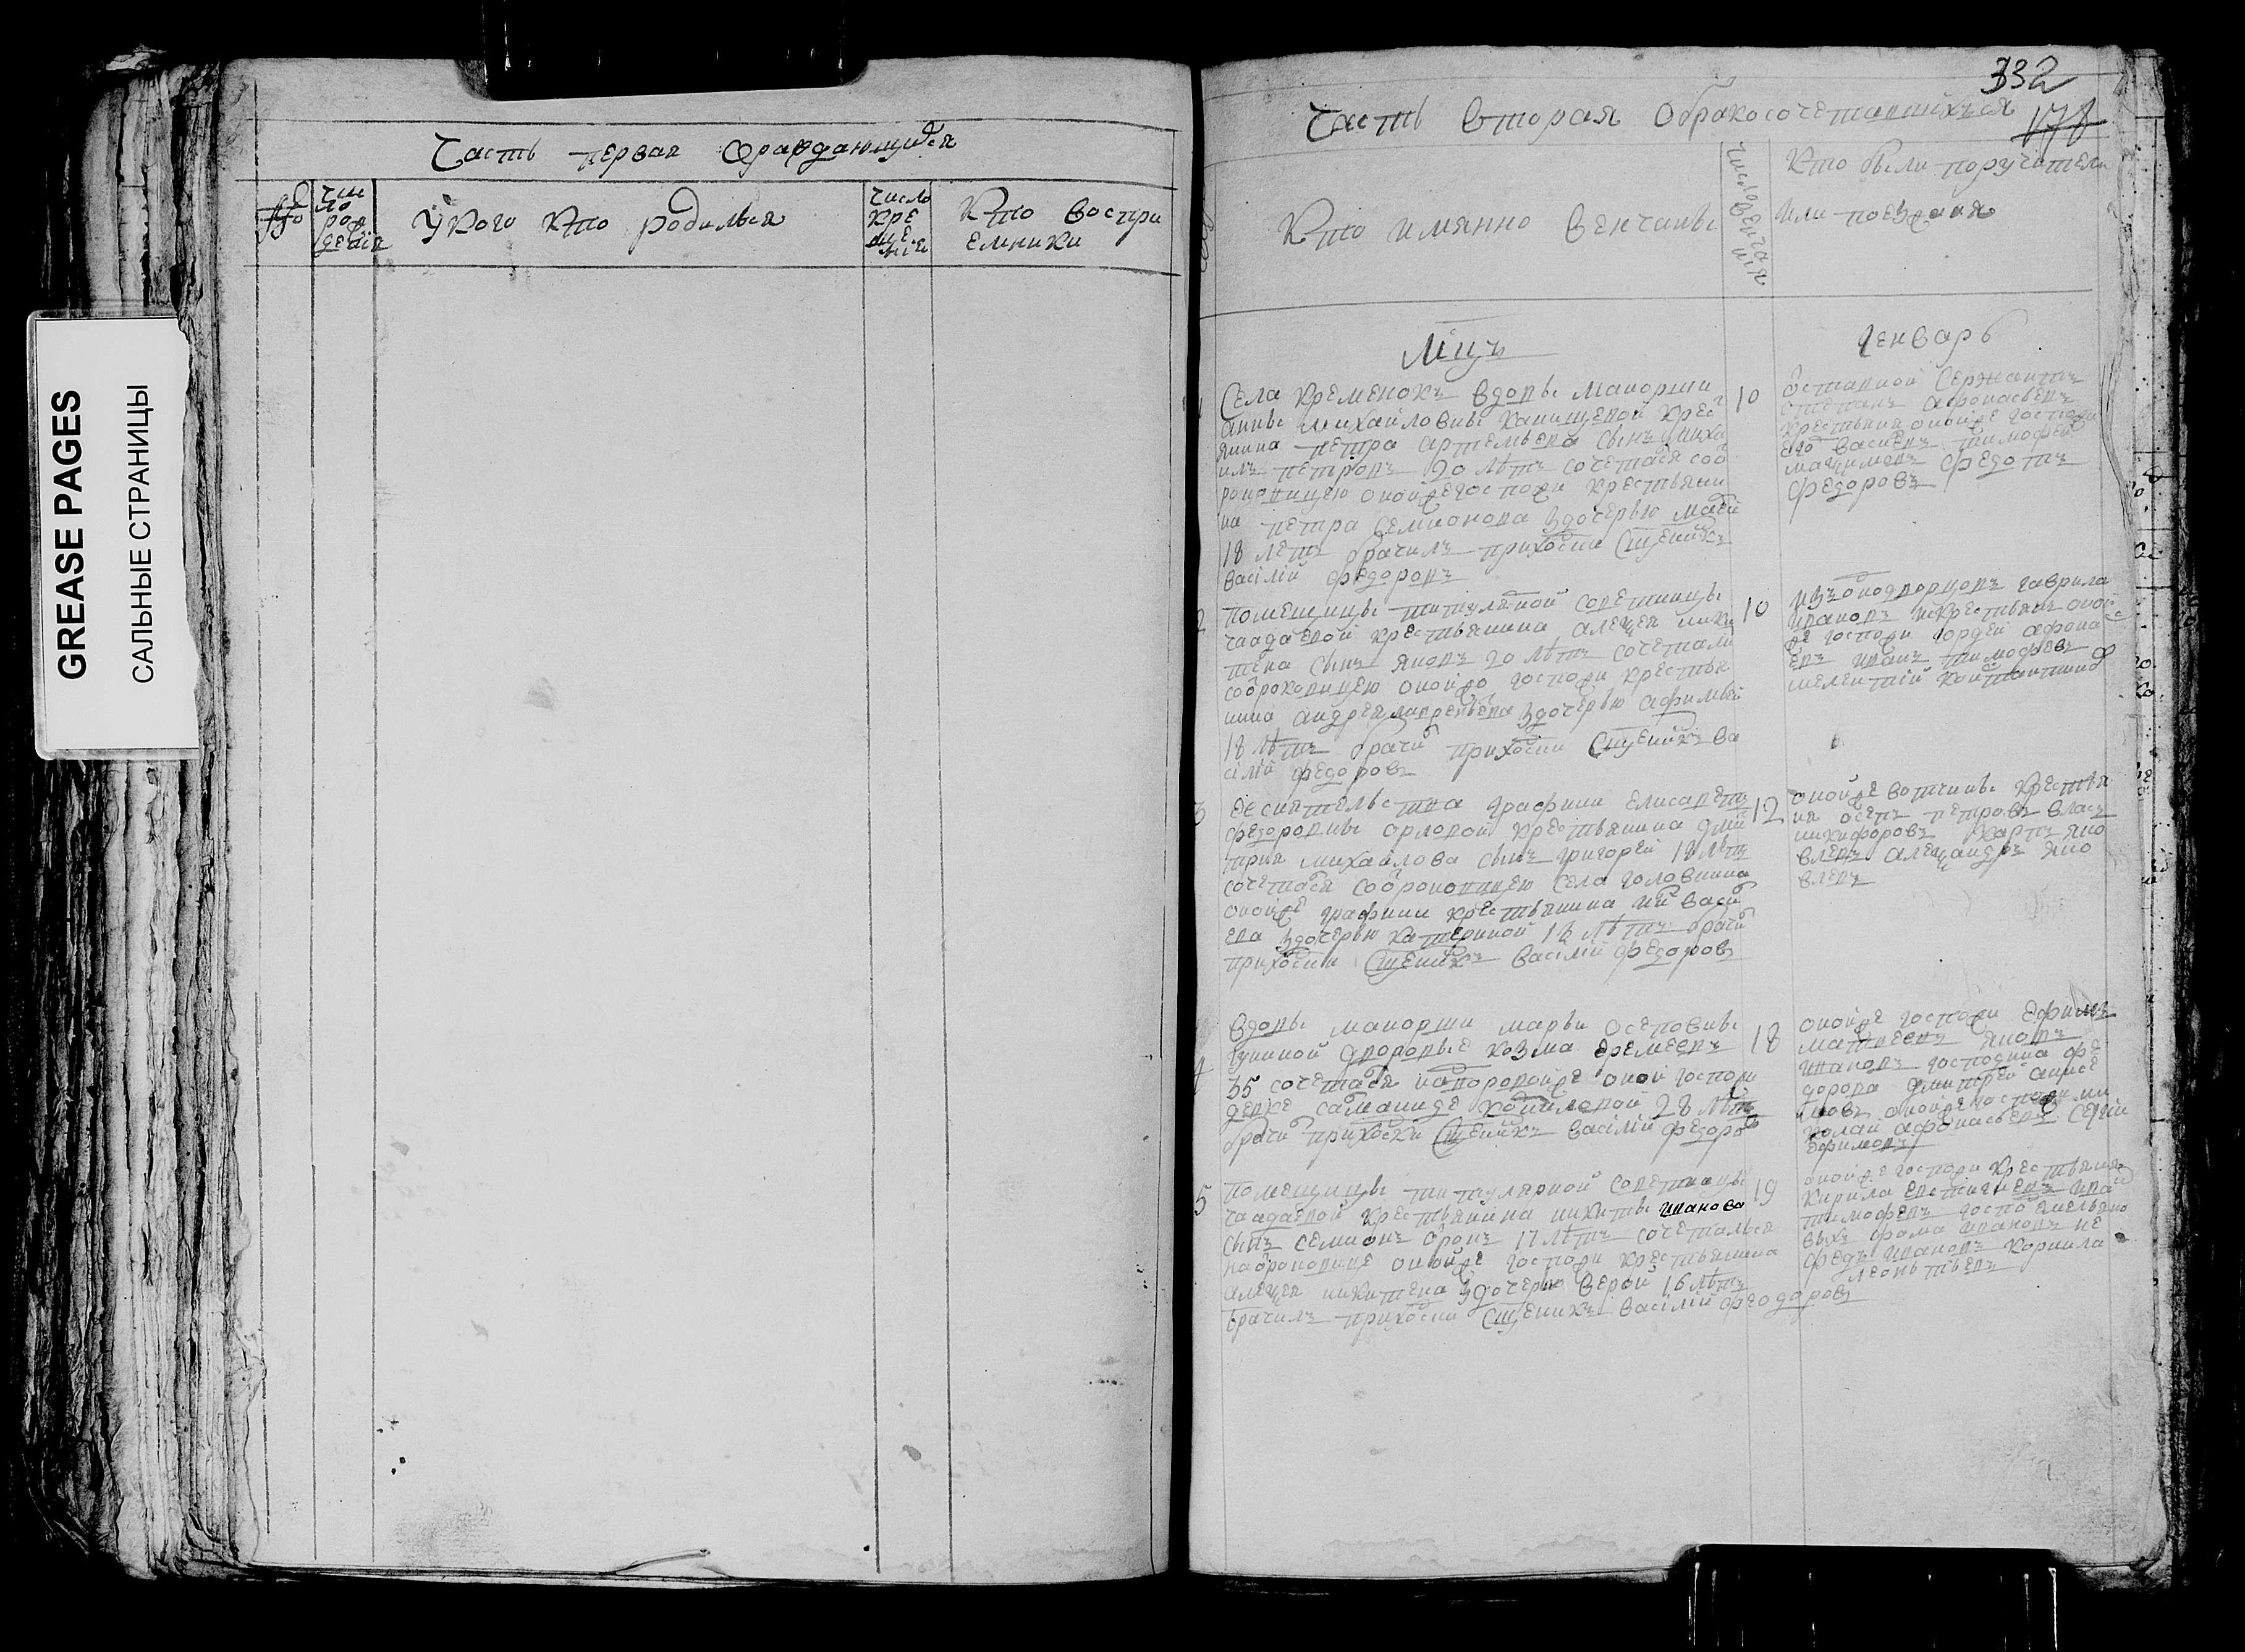 GREASE PAGES
САЛЬНЫЕ СТРАНИЦЫ
Часть первая о раждающихся
Число рождения
У кого кто родился
Число крещения
Кто восприемники
332
178
Часть вторая о бракосочетавшихъся
Кто имянно венчаны
Число венчания
Кто были поручители
или поезжаня
Мцъ
Генварь
1
Села Кременокъ вдовы маиорши
анны михайловны крес
янина петра артемьева сынъ миха
илъ петровъ 20 летъ сочетася соо
роковицею оной же госпожи крестьяни
на петра семионова здочерью
18 летъ брачилъ приходски сщенникъ
василий федоровъ
10
оставной сержантъ
степанъ афонасьевъ
крестьяня оной же госпожи
тимофей
федотъ
федоровъ
2
помещицы титулярной советницы
чаадаевой крестьянина алеѯея ники
тина сынъ яковъ 20 летъ сочетали
соотроковицею оной же госпожи крестья
нина андрея здочерью афимьей
18 летъ брачи приходски сщенникъ ва
силий федоровъ
10
изъ однодворцовъ гаврила
ивановъ искрестьянъ оной
же госпожи гордей афона
евъ иванъ тимофевъ
мелентий
3
графини елисаветы
федоровны орловой крестьянина дми
трия михайлова сынъ григорей 18 летъ
сочетася соотроковицею села головнина
оной же графини крестьянина васи
ева здочерью катериной 18 летъ брачи
приходски сщенникъ василий федоровъ
12
оной же вотчины крестья
ня осепъ петровъ власъ
никифоровъ карпъ яко
влевъ алеѯандръ яко
влевъ
4
вдовы маиорши марьи осеповны
козма еремеевъ
35 сочетася оной госпожи
девке 28 летъ
брачи приходски сщенникъ василий федоровъ
18
оной же госпожи ефимъ
матвеевъ яковъ
ивановъ господина фе
дорова дмитрей
оной же госпожи ни
колай афонасьевъ сергей
ефимовъ
5
помещицы титулярной советницы
чаадаевой крестьянина никиты иванова
сынъ семионъ 17 летъ сочетался
оной же госпожи крестьянина
алеѯея никитина здочерью верой 16 летъ
брачилъ приходски сщенникъ василий феодоровъ
19
оной же госпожи крестьяня
кирила евстигневъ иванъ
тимофевъ госпо емельяно
выхъ фома ивановъ не
федъ ивановъ корнила
леонтьевъ